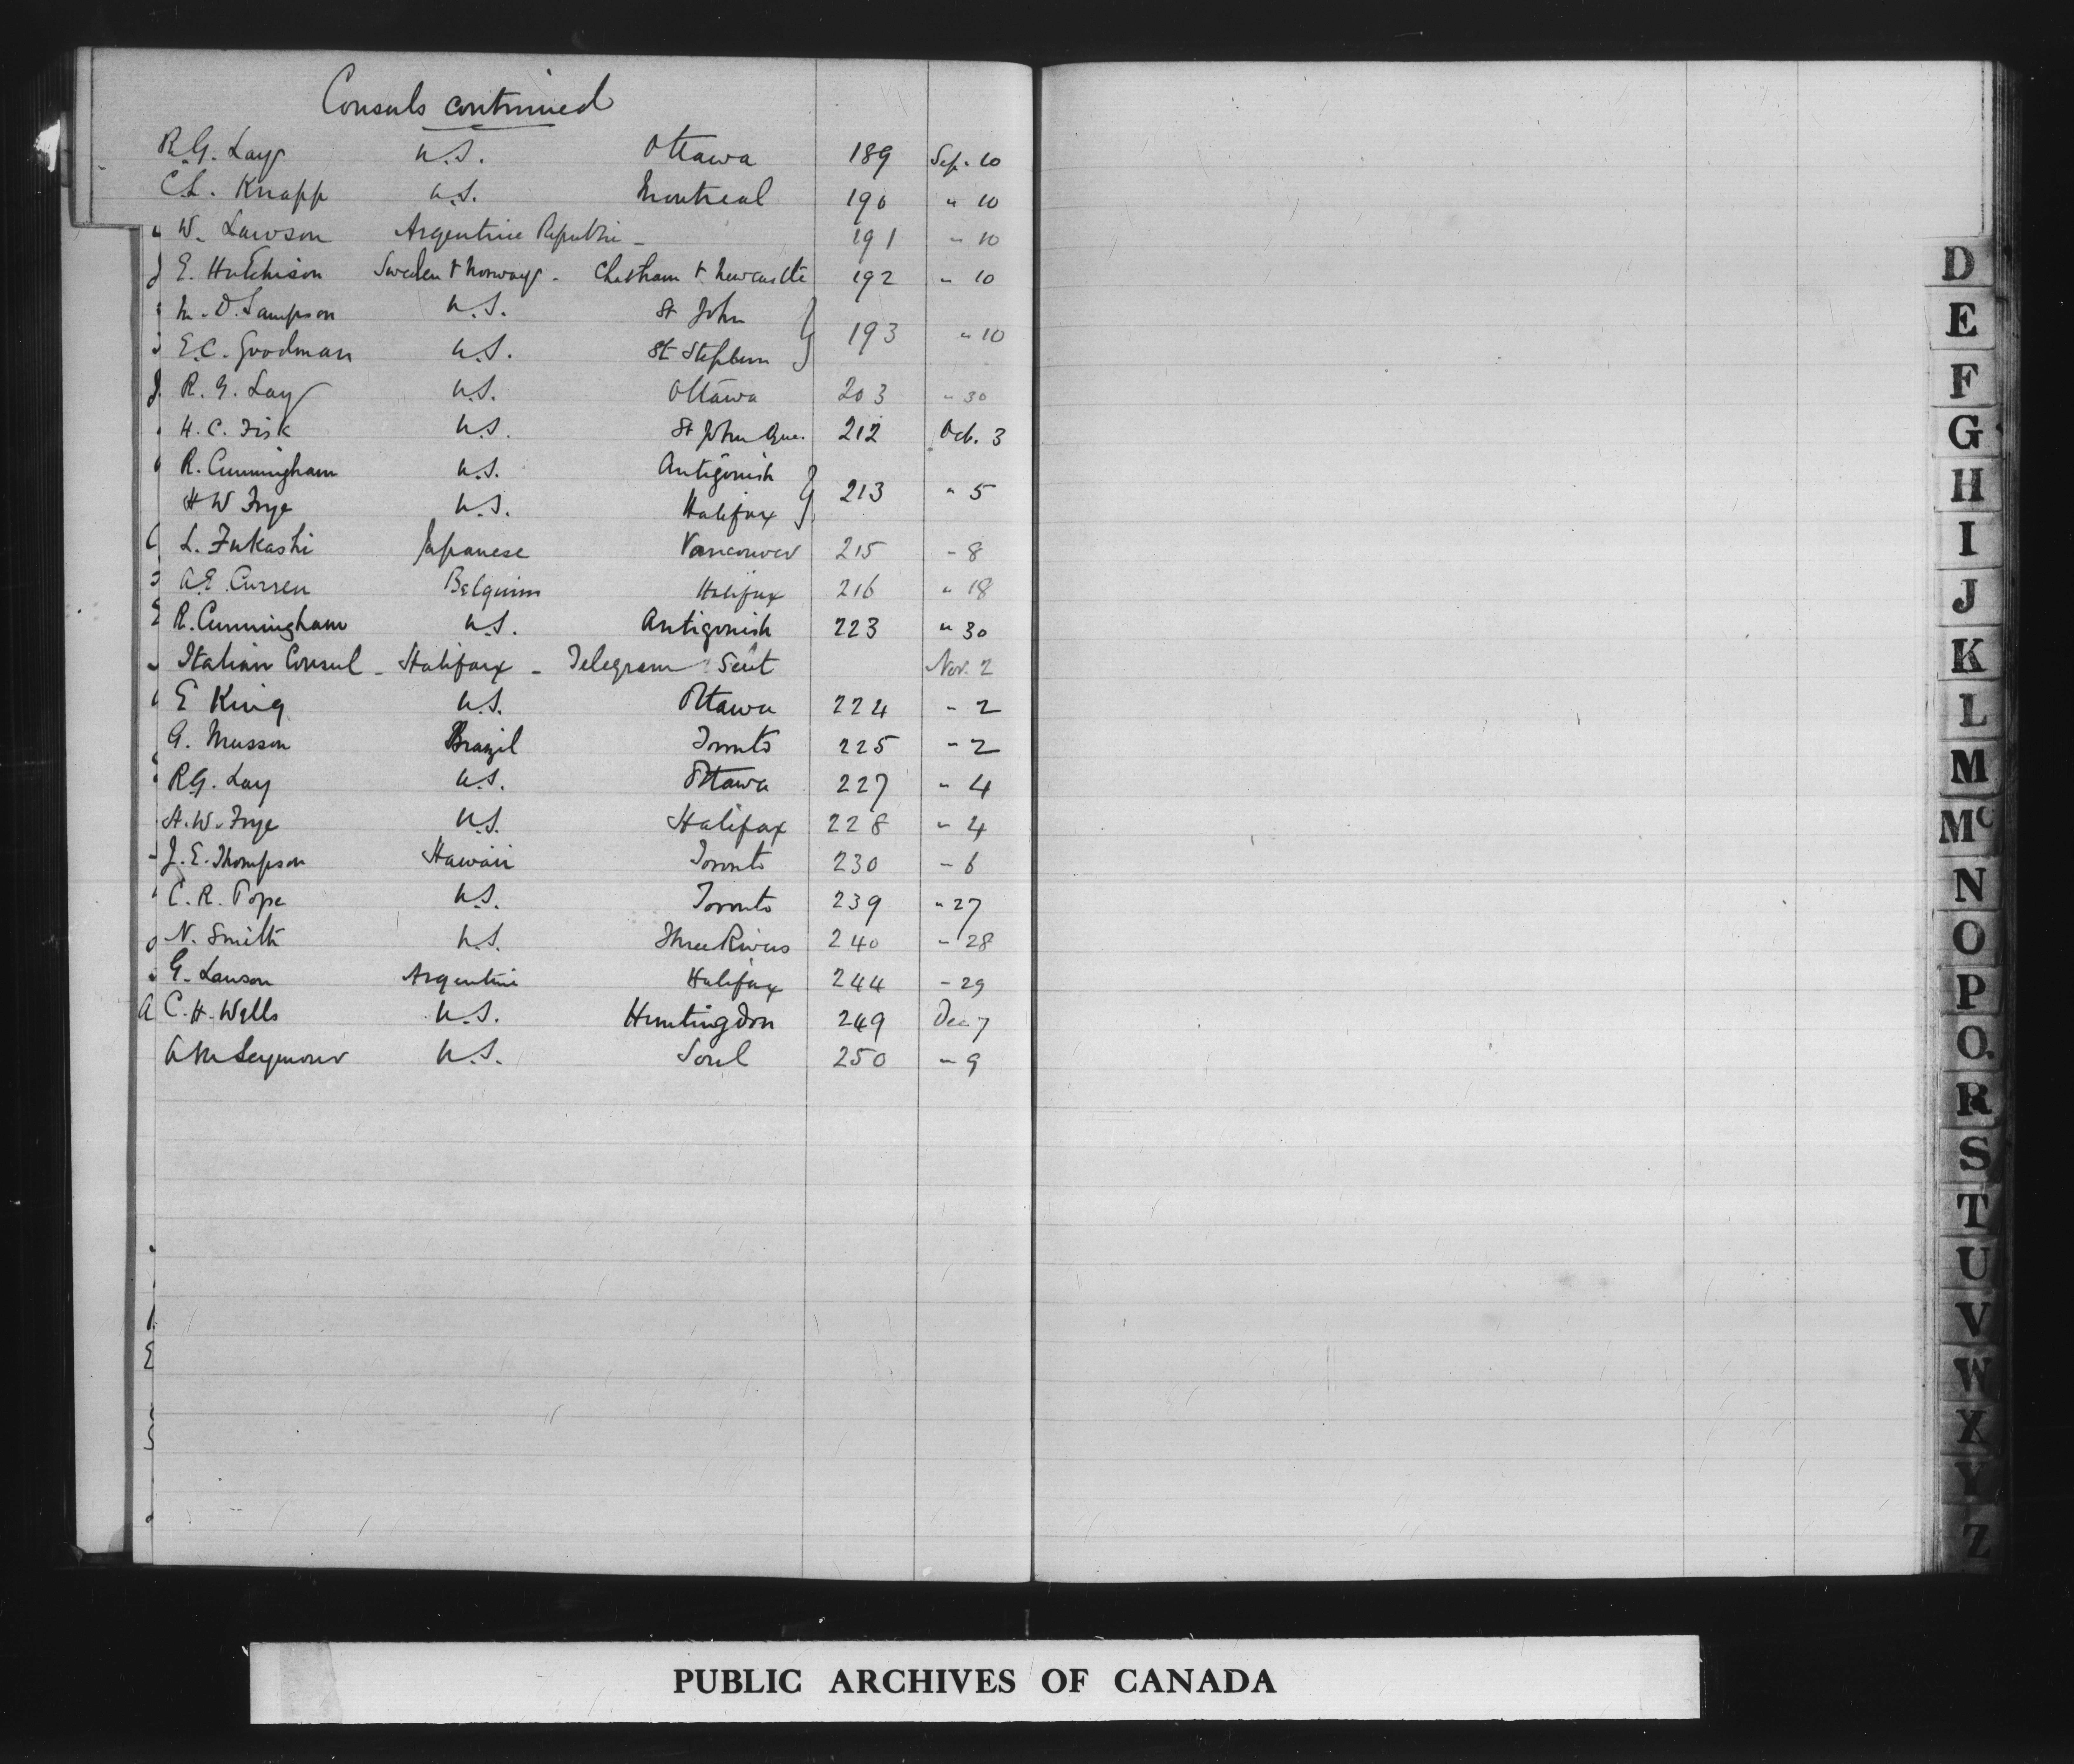 Consuls continued
R.G. Lay U.S. Ottawa 189 Sep. 10
C.L. Knapp U.S. Montreal 190 " 10
W. Lawson Argentine Republic - 191 " 10
E. Hutchison Sweden & Norway - Chatham & Newcastle 192 " 10
M. D. Sampson U.S. St John
193 " 10
E.C. Goodman U.S. St Stephen
R. G. Lay U.S. Ottawa 203 " 30
H. C. Fisk U.S. St John Que. 212 Oct. 3
R. Cunningham U.S. Antigonish
213 " 5
H W Frye U.S. Halifax
L. Fukashi Japanese Vancouver 215 " 8
A.E. Curren Belguim Halifax 216 " 18
R. Cunningham U.S. Antigonish 223 " 30
Italian Consul - Halifax - Telegram Sent Nov. 2
E King U.S. Ottawa 224 " 2
G. Musson Brazil Toronto 225 " 2
R.G. Lay U.S. Ottawa 227 " 4
H.W. Frye U.S. Halifax 228 " 4
J. E. Thompson Hawaii Toronto 230 " 6
C. R. Pope U.S. Toronto 239 " 27
N. Smith U.S. Three Rivers 240 " 28
G. Lawson Argentine Halifax 244 " 29
C. H. Wells U.S. Huntingdon 249 Dec 7
A M Seymour U.S. Sorel 250 " 9
D
E
F
G
H
I
J
K
L
M
Mc
N
O
P
Q
R
S
T
U
V
W
X
Y
Z
PUBLIC ARCHIVES OF CANADA